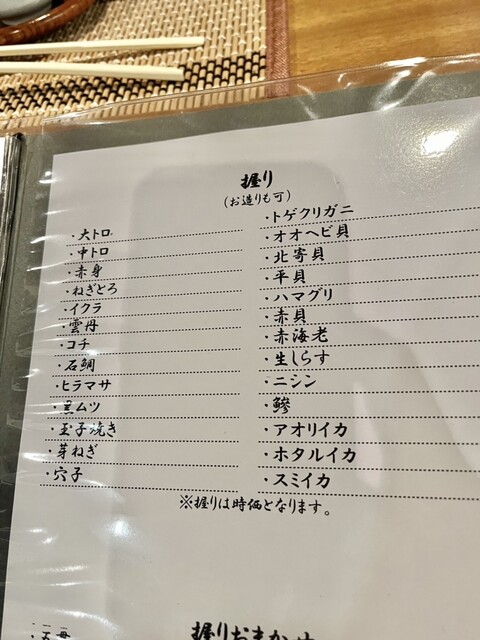 握り
(お造りも可)
・大トロ
・中トロ
・赤身
・ねぎとろ
・イクラ
・雲丹
・コチ
・石鯛
・ヒラマサ
・黒ムツ
・玉子焼き
・芽ねぎ
・穴子
・トゲクリガニ
・オオヘビ貝
・北寄貝
・平貝
・ハマグリ
・赤貝
・赤海老
・生しらす
・ニシン
・鯵
・アオリイカ
・ホタルイカ
・スミイカ
※握りは時価となります。
握りおまかせ